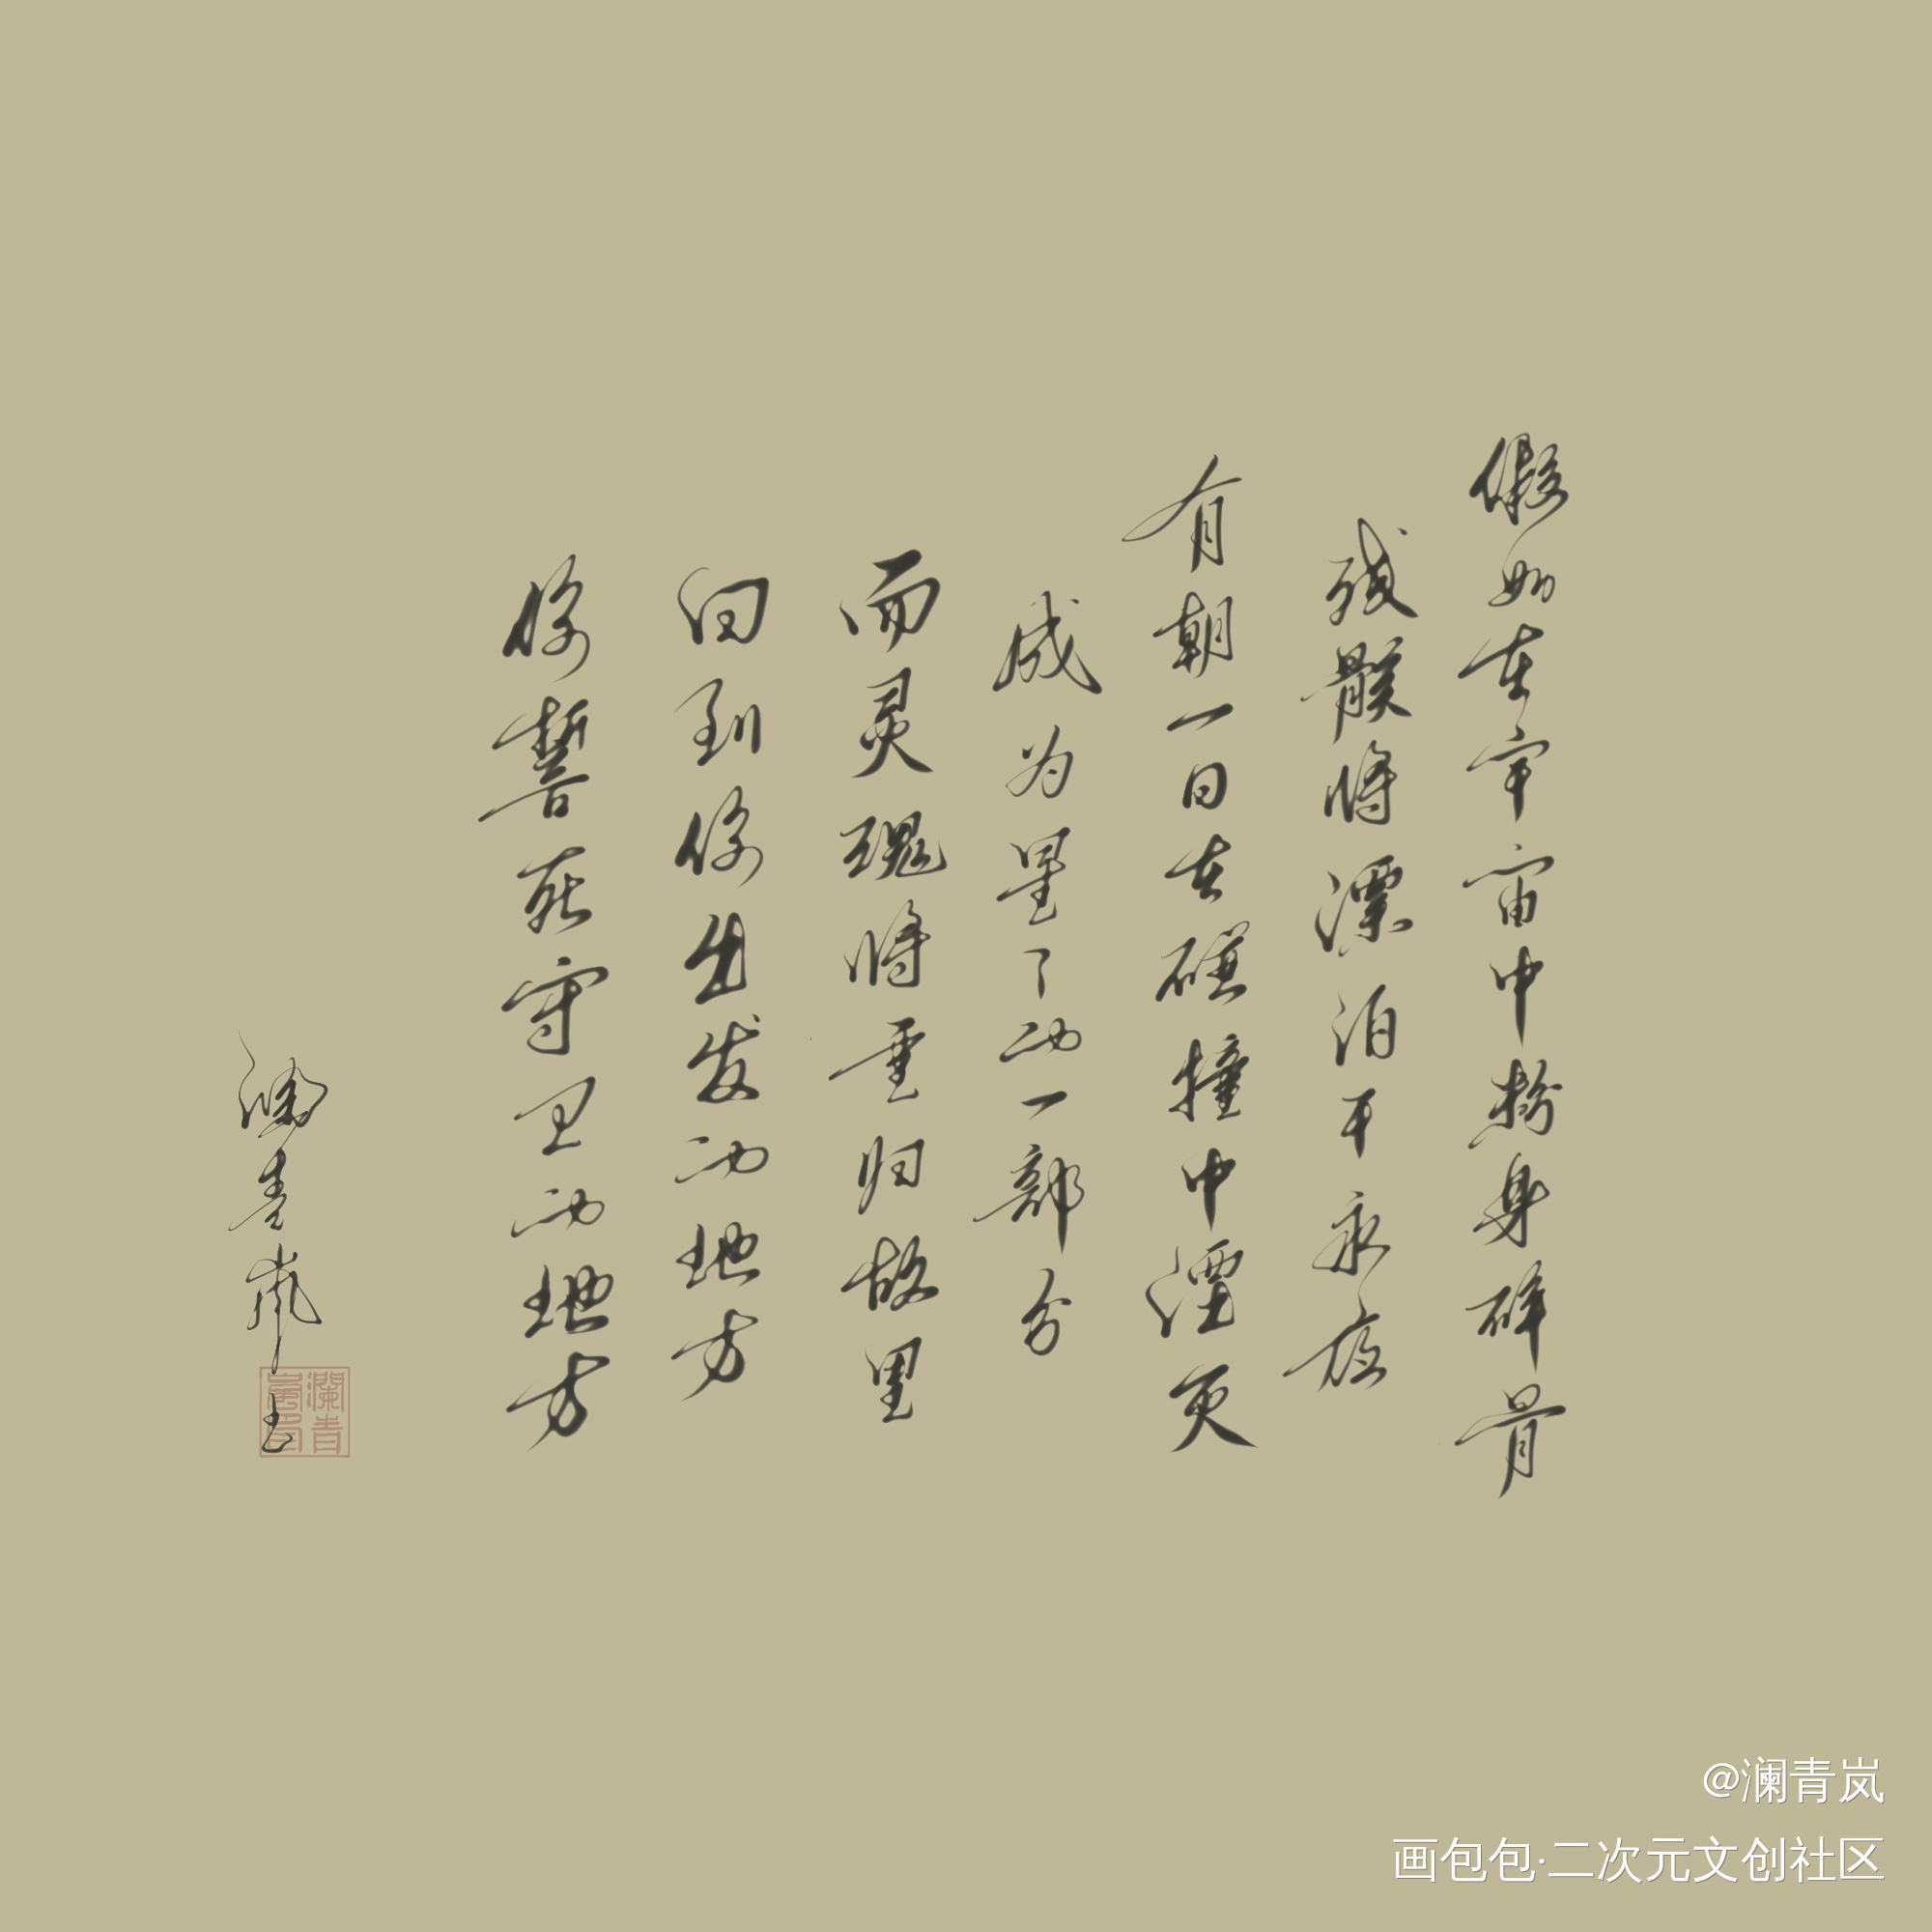 假如在宇宙中粉身碎骨
残骸将漂泊于永夜
有朝一日在碰撞中湮灭
成为星了的一部分
而灵魂将重归故里
回到你出发的地方
你誓死守卫的地方
澜青岚书
@澜青岚
画包包·二次元文创社区